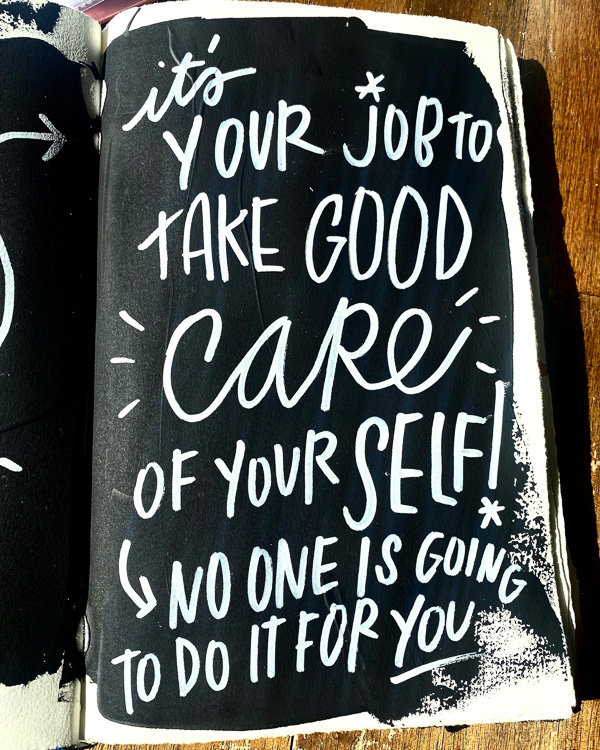 it's
YOUR *JOB TO
TAKE GOOD
CARE
OF YOUR SELF!
*
NO ONE IS GOING
TO DO IT FOR YOU